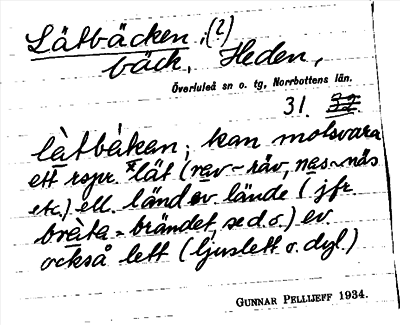 Lätbäcken, (2)
bäck, Heden,
Överluleå sn o. tg, Norrbottens län.
31.
làtbäkan; kan motsvara
ett rspr. *lät (rav ~ räv, nas ~ näs
etc.) ell. länd ev lände (jfr
bràta = brändet, se d.o.) ev
också lett (ljuslett o. dyl.)
GUNNAR PELLIJEFF 1934.